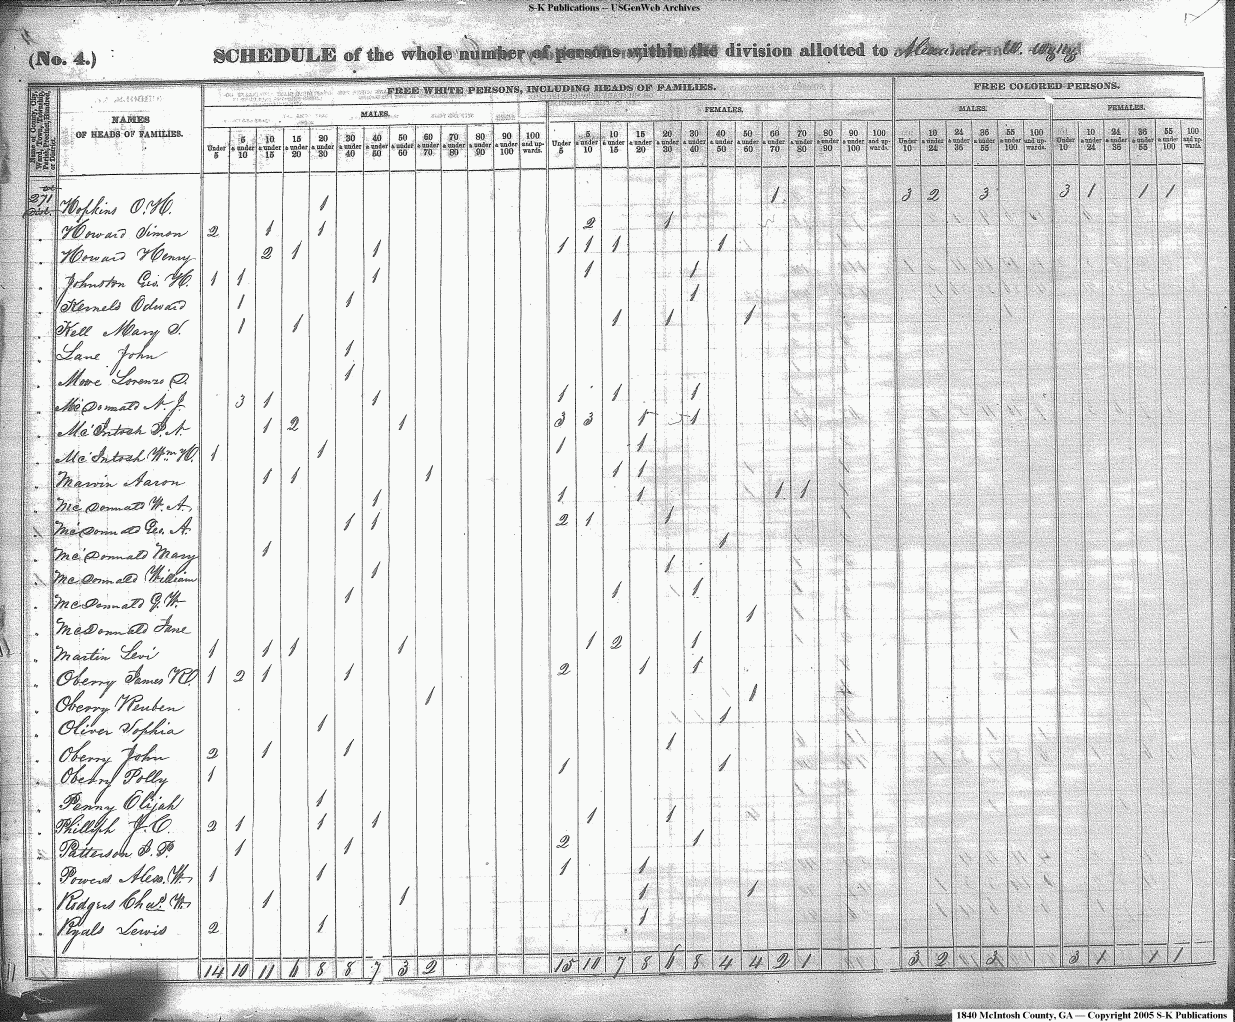 S-K Publications – USGenWeb Archives
(No. 4.) SCHEDULE of the whole number of persons within the division allotted to Alexander W. Wylly
FREE WHITE PERSONS, INCLUDING HEADS OF FAMILIES. FREE COLORED PERSONS.
NAMES OF HEADS OF FAMILIES.
MALES. FEMALES. MALES. FEMALES.
Under 5 | 5 & under 10 | 10 & under 15 | 15 & under 20 | 20 & under 30 | 30 & under 40 | 40 & under 50 | 50 & under 60 | 60 & under 70 | 70 & under 80 | 80 & under 90 | 90 & under 100 | 100 and upwards. | Under 5 | 5 & under 10 | 10 & under 15 | 15 & under 20 | 20 & under 30 | 30 & under 40 | 40 & under 50 | 50 & under 60 | 60 & under 70 | 70 & under 80 | 80 & under 90 | 90 & under 100 | 100 and upwards. | Under 10 | 10 & under 24 | 24 & under 36 | 36 & under 55 | 55 & under 100 | 100 and upwards. | Under 10 | 10 & under 24 | 24 & under 36 | 36 & under 55 | 55 & under 100 | 100 and upwards.
271 Dist. Hopkins O. H. 1 1 3 2 3 3 1 1 1
Howard Simon 2 1 1 2 1
Howard Henry 2 1 1 1 1 1 1
Johnston Geo. H. 1 1 1 1 1
Kernels Odward 1 1 1
Kell Mary S. 1 1 1 1 1
Lane John 1
More Lorenzo D. 1
McDonald N. J. 3 1 1 1 1 1
McIntosh S. N. 1 2 1 3 3 1 1
McIntosh Wm H. 1 1 1 1
Marvin Aaron 1 1 1 1 1
McDonnald W. A. 1 1 1 1 1
McDonnald Geo. A. 1 1 2 1 1
McDonnald Mary 1 1
McDonnald William 1 1
McDonnald G. W. 1 1 1
McDonnald Jane 1
Martin Levi 1 1 1 1 1 2 1
Oberry James R. 1 2 1 1 2 1 1
Oberry Reuben 1 1
Oliver Sophia 1 1
Oberry John 2 1 1 1
Oberry Polly 1 1 1
Penny Elijah 1
Philliph J. C. 2 1 1 1 1 1
Patterson S. P. 1 1 2 1
Powers Alexr. W. 1 1 1 1
Rodgers Chas. W. 1 1 1 1
Ryals Lewis 2 1 1
14 10 11 6 8 8 7 3 2 15 10 7 8 6 8 4 4 2 1 3 2 3 3 1 1 1
1840 McIntosh County, GA — Copyright 2005 S-K Publications